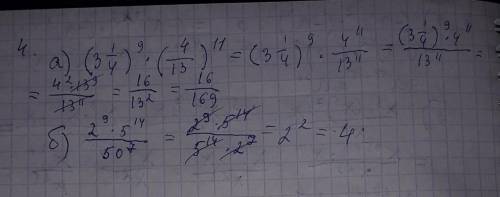 4. а) (3 1/4)^9 · (4/13)^11 = (3 1/4)^9 · 4^11/13^11 = (3 1/4)^9 · 4^11/13^11 =
= 4^2 · 13^9/13^11 = 16/13^2 = 16/169
б) 2^9 · 5^14/50^7 = 2^9 · 5^14/5^14 · 2^7 = 2^2 = 4.